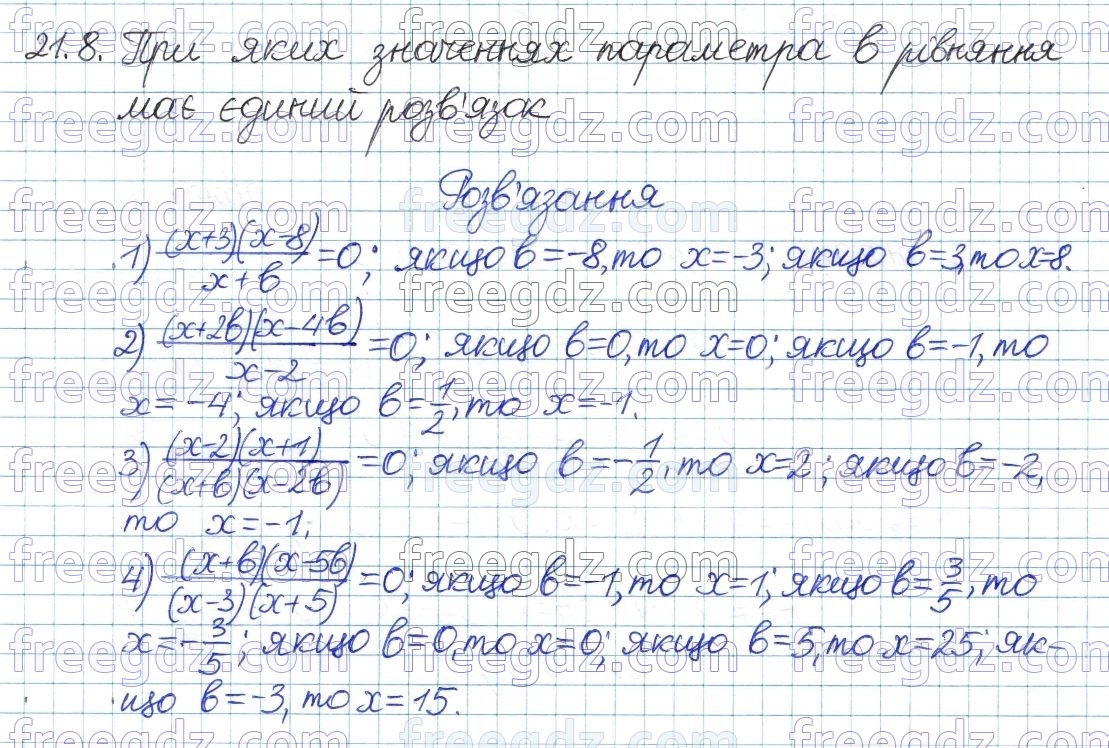 21.8. При яких значеннях параметра в рівняння
має єдиний розв'язок
Розв'язання
1) (x+3)(x-8)/x+в =0; якщо в=-8, то x=-3; якщо в=3, то x=8.
2) (x+2в)(x-4в)/x-2 =0; якщо в=0, то x=0; якщо в=-1, то
x=-4; якщо в=1/2, то x=-1.
3) (x-2)(x+1)/(x+в)(x-2в) =0; якщо в=-1/2, то x=2; якщо в=-2,
то x=-1.
4) (x+в)(x-5в)/(x-3)(x+5) =0; якщо в=-1, то x=1; якщо в=3/5, то
x=-3/5; якщо в=0, то x=0; якщо в=5, то x=25; як-
що в=-3, то x=15.
freegdz.com